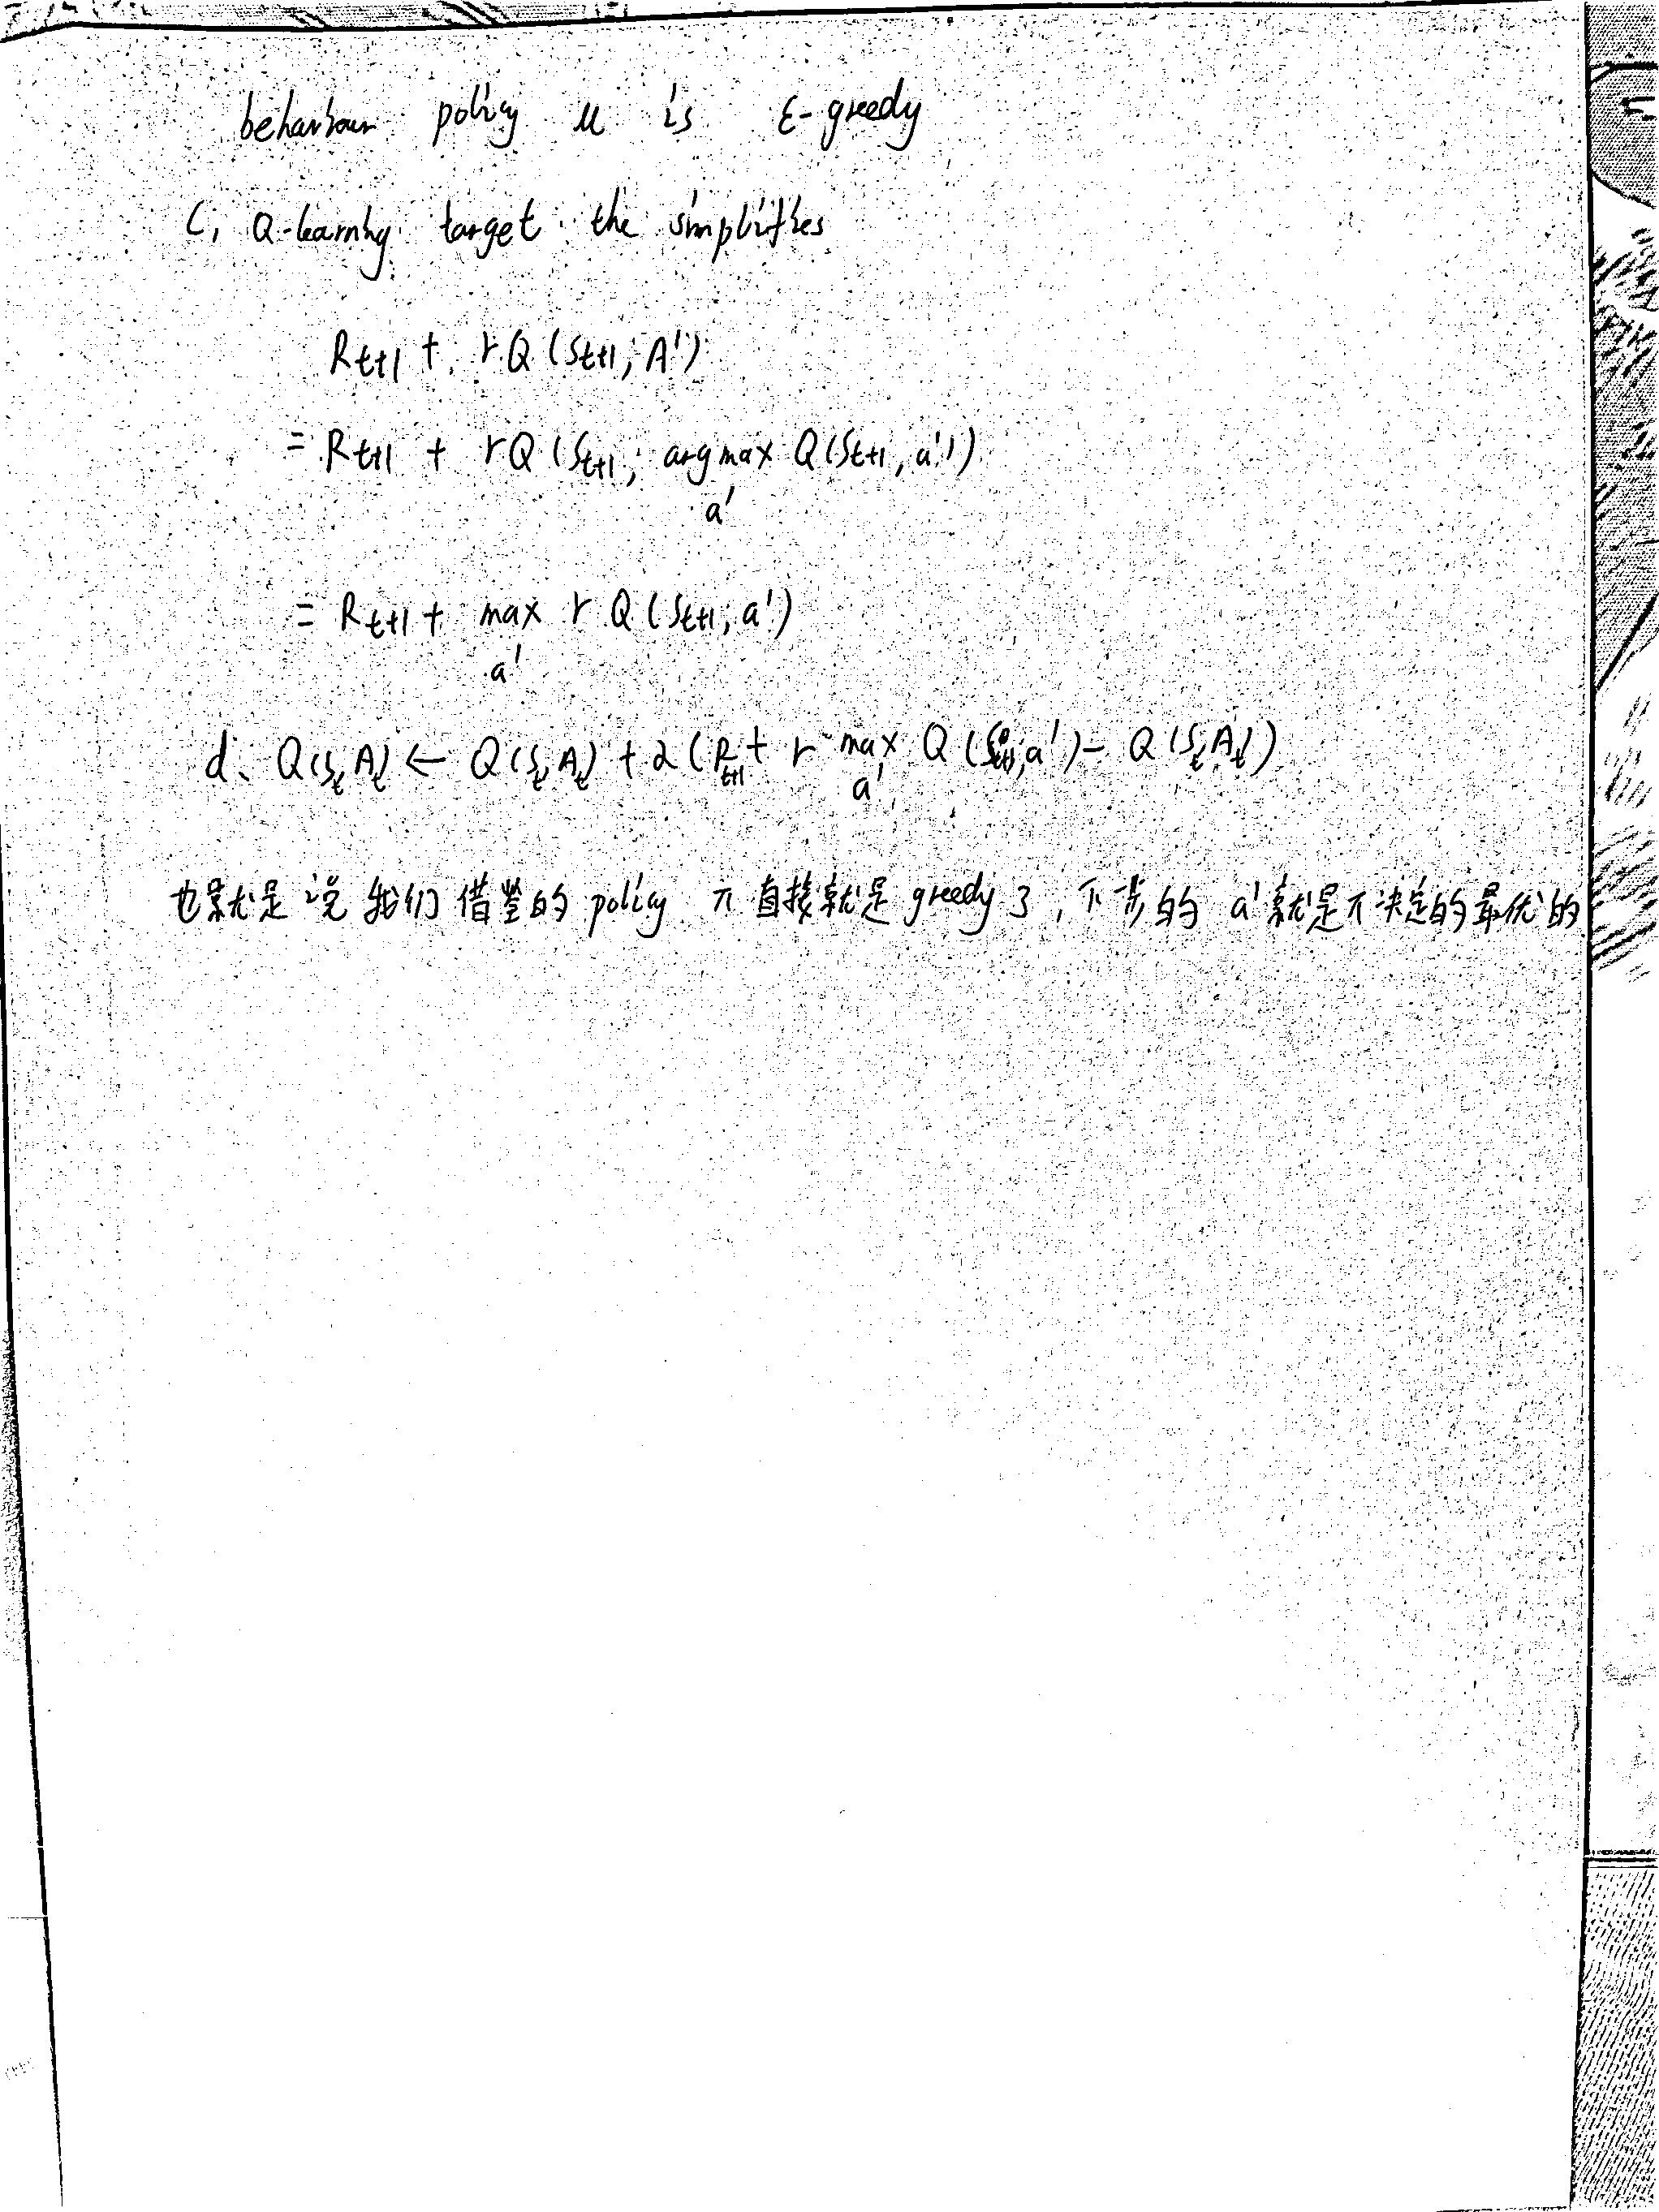 behaviour policy μ is ε-greedy
c、Q-learning target the simplifies
Rt+1 + rQ(St+1, A')
= Rt+1 + rQ(St+1, argmax Q(St+1, a'))
a'
= Rt+1 + max r Q(St+1, a')
a'
d、Q(St, At) ← Q(St, At) + α(Rt+1 + r max Q(St+1, a') - Q(St, At))
a'
也就是说我们借鉴的 policy π 直接就是 greedy 了，下步的 a' 就是π决定的最优的